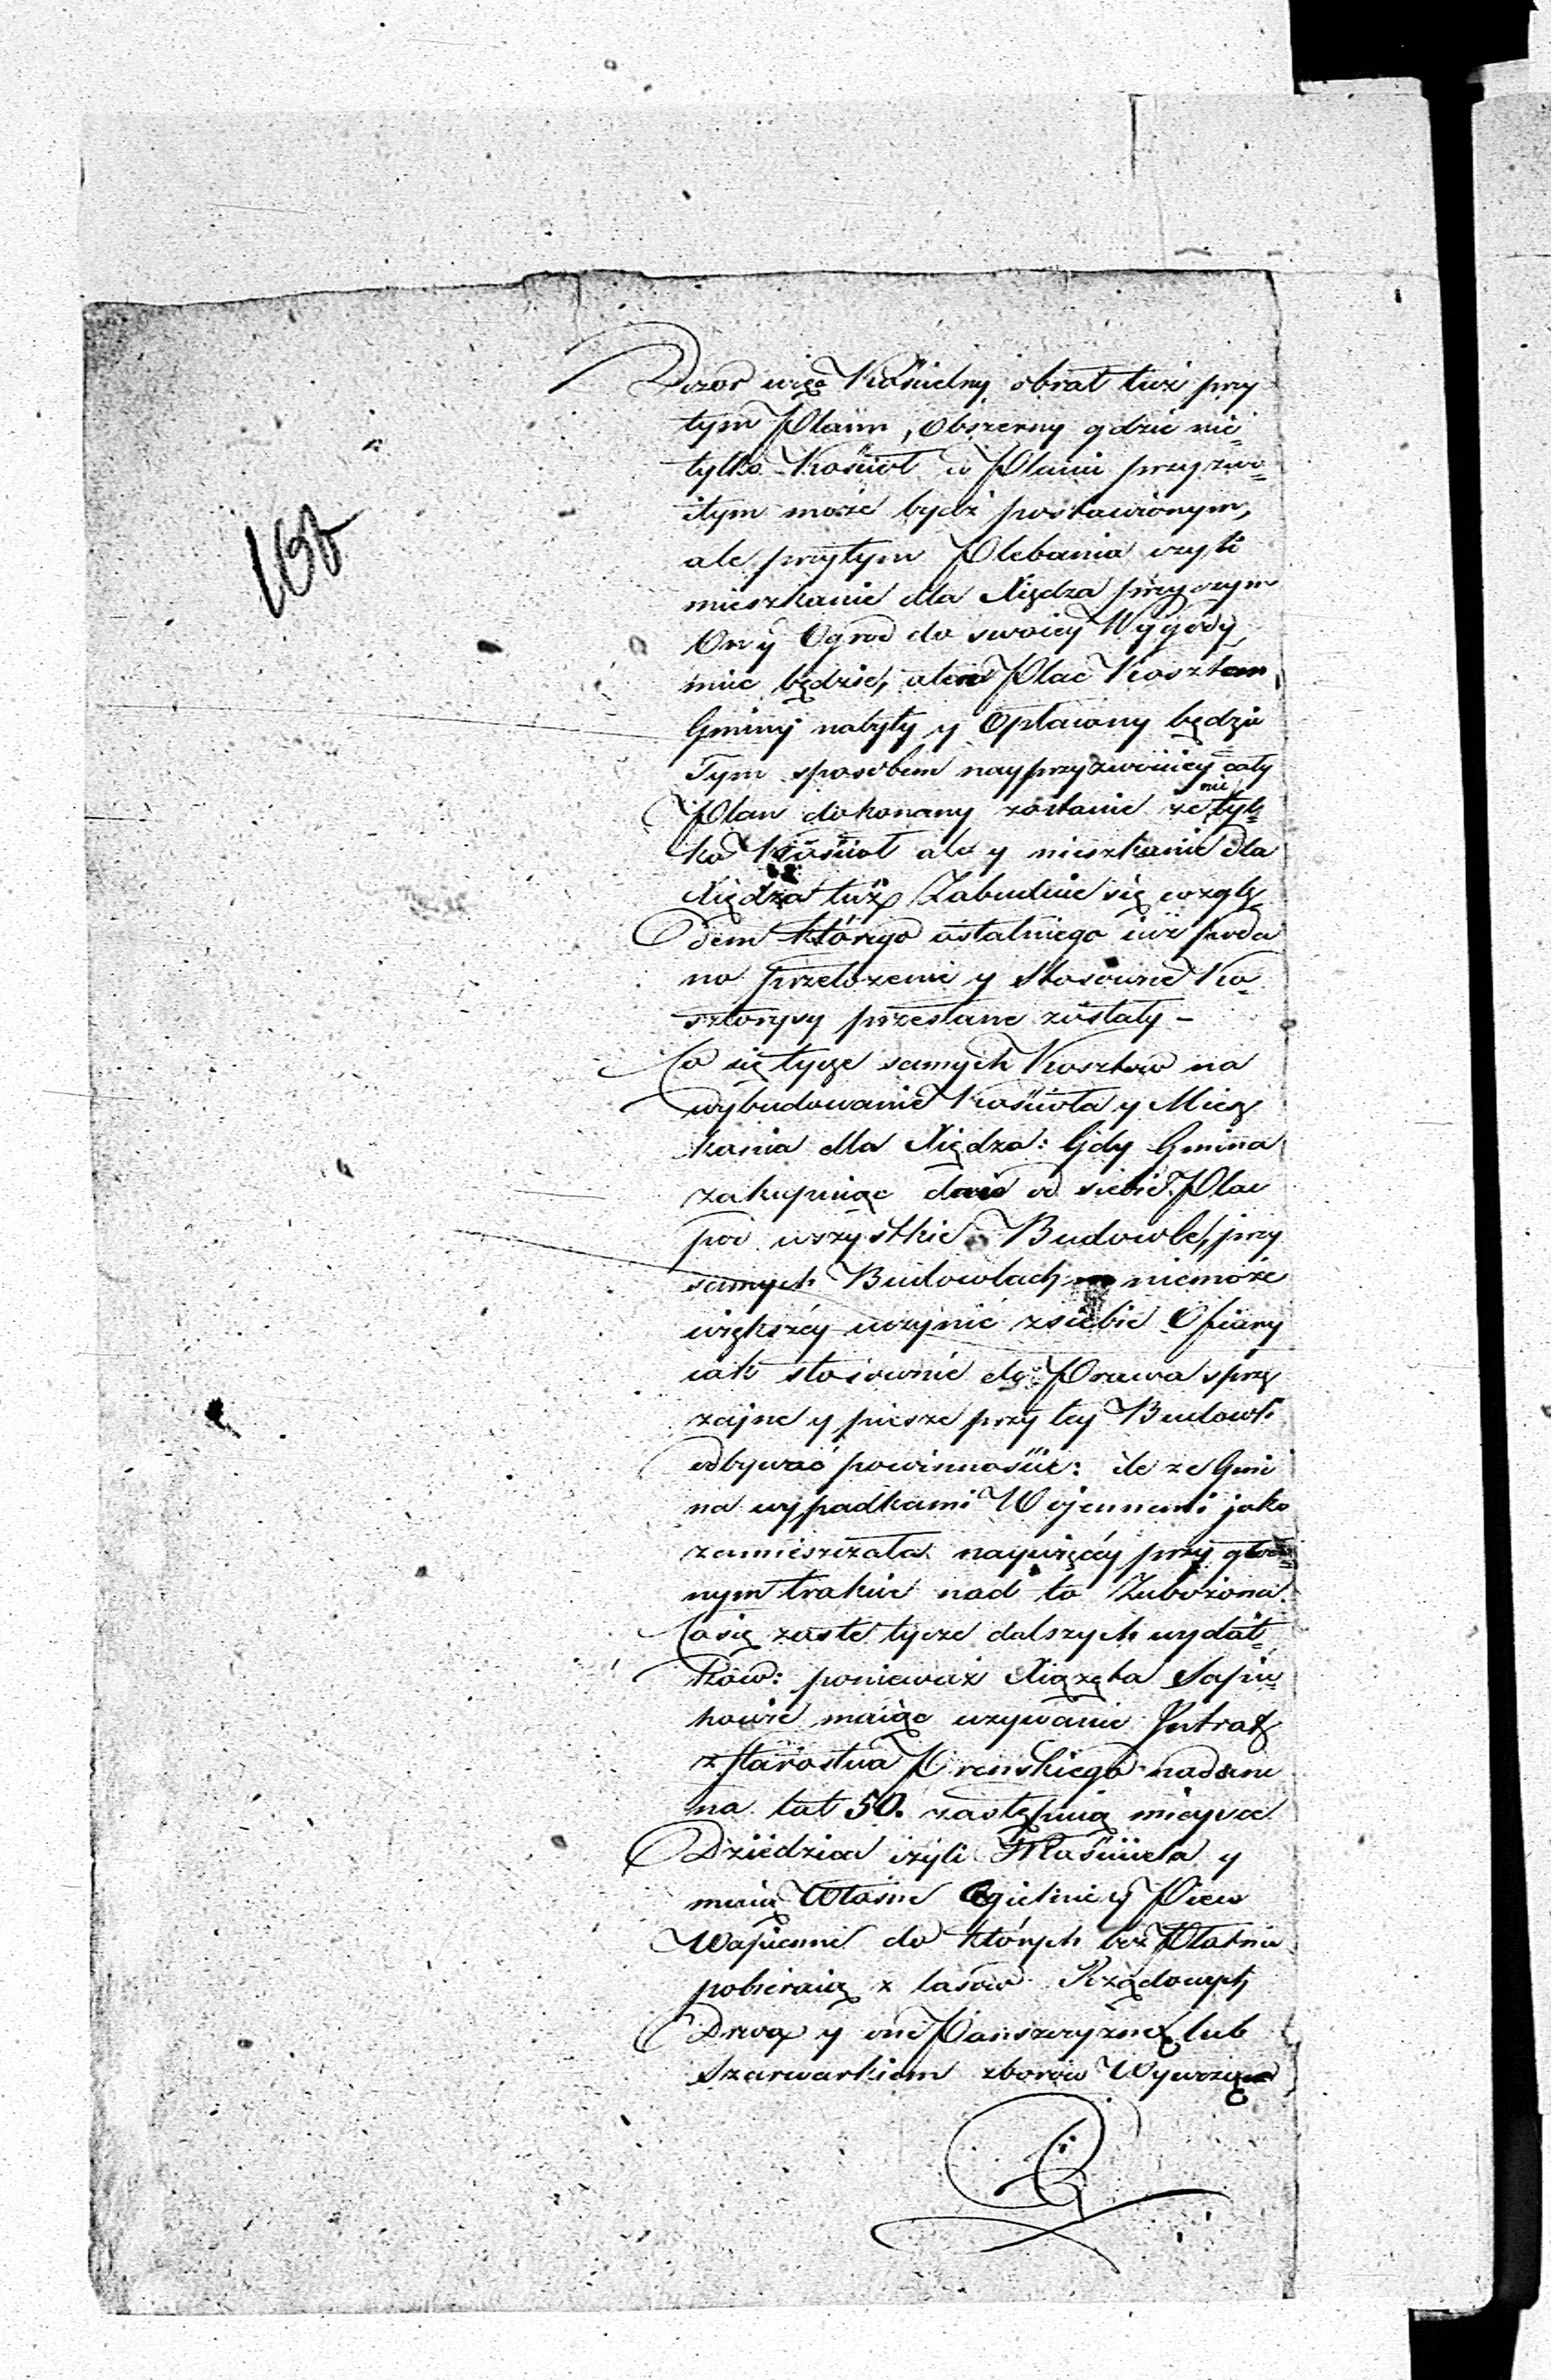 Dozor więc Kościelny obrał tuż przy
tym Plann, obszerny gdzie nie¬
tylko Kościoł w Planie przyzwo¬
itym może bydź postawionym,
ale przytym Plebania czyli
mieszkanie dla Xiędza przyczym
On y Ogrod do swoiey Wygody
mieć będzie, a ten Plac Kosztem
Gminy nabyty y Opłacony będzie
Tym sposobem nayprzyzwoiciey cały
Plan dokonany zostanie że nie tyl¬
ko Kościoł ale y mieszkanie dla
Xiędza tuż Zabuduie się wzglę
dem którego ostatniego iuż poda
no przełożenie y stosowne Ko¬
sztorysy przesłane zostały –
Co się tycze samych Kosztow na
wybudowanie Kościoła y Miesz
kania dla Xiędza: Gdy Gmina
zakupuiąc daie od siebie Plac
pod wszystkie Budowle, przy
samych Budowlach niemoże
większéy uczynić z siebie Ofiary
iak stosownie do Prawa sprzę
żayne y piesze przy tey Budowli
odbywać powinności: ile że Gmi
na wypadkami Wojennemi jako
zamieszkała naywięcéy przy głow¬
nym trakcie nad to Zubożona.
Co się zaśte tycze dalszych wydat¬
ków: ponieważ Xiążęta Sapie¬
howie maiąc używanie Intraty
z Starostwa Prenskiego nadane
na lat 50. zastępuią mieysce
Dziedzica czyli Właściciela y
maią Własne Cegielnie y Piece
Wapienne do których bez Płatnie
pobieraią z lasow Rządowych
Drwa y one Pańszczyzną lub
Szarwarkiem zborow Wywożą